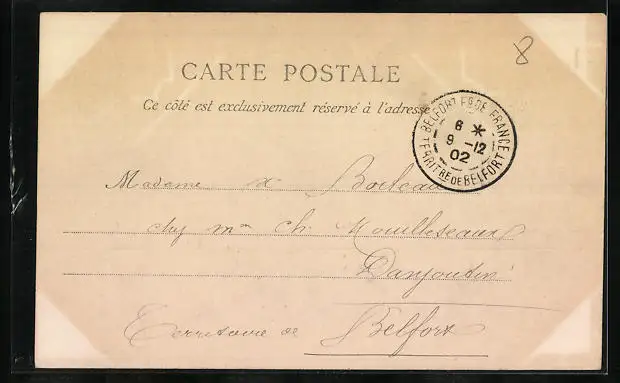 8
CARTE POSTALE
Ce côté est exclusivement réservé à l'adresse
BELFORT Fg DE FRANCE
6 *
9 -12
02
TERRITRE DE BELFORT
Madame
chez mr Ch. Houilleseaux
Danjoutin
Territoire de Belfort